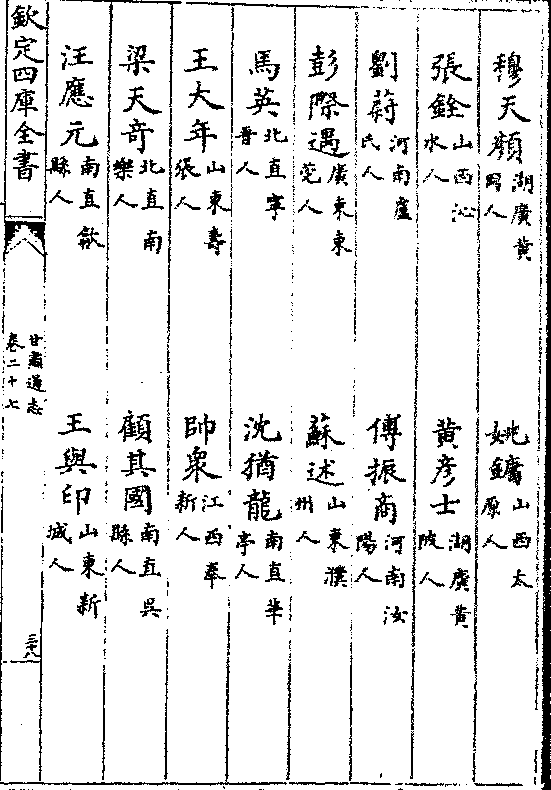 穆天顏湖廣黃岡人 姚鏞山西太原人
張銓山西沁水人 黃彥士湖廣黃陂人
劉蔚河南盧氏人 傅振商河南汝陽人
彭際遇廣東東莞人 蘇述山東濮州人
馬英北直寧晉人 沈猶龍南直華亭人
王大年山東壽張人 帥衆江西奉新人
梁天竒北直南樂人 顧其國南直吳縣人
汪應元南直歙縣人 王與印山東新城人
欽定四庫全書 甘肅通志卷二十七 三十八